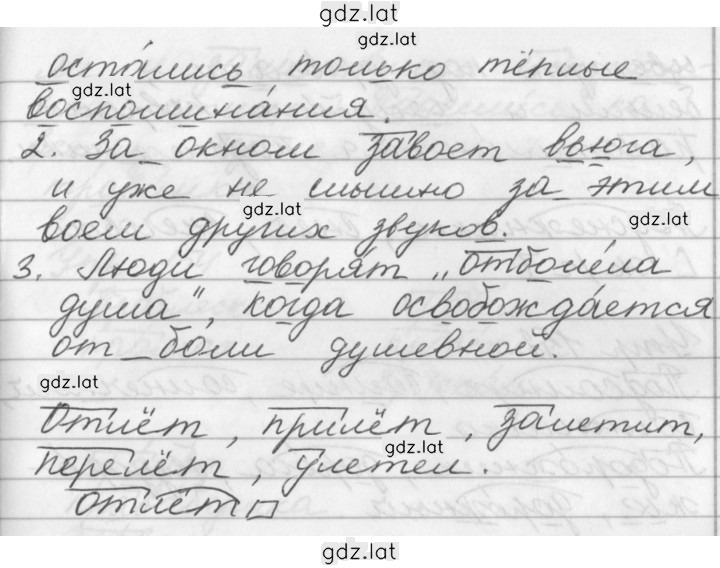 gdz.lat
gdz.lat
оста́лись только тёплые
gdz.lat
воспомина́ния.
2. За окном завоет вьюга,
и уже не слышно за этим
gdz.lat
gdz.lat
воем других звуков.
3. Люди говоря́т „отболе́ла
душа“, когда освобожда́ется
от боли душевной.
gdz.lat
Отлёт, прилёт, залетит,
gdz.lat
перелёт, улетел.
отлёт
gdz.lat